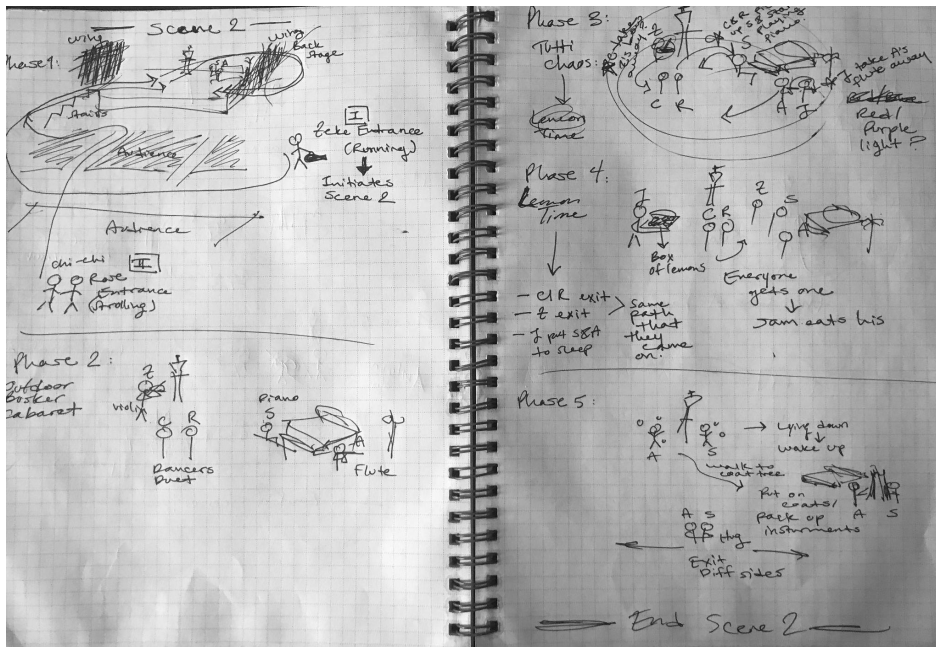 Scene 2
Phase 1:
wing
wing
Back
Stage
S A
stairs
Audience
I
Zeke Entrance
(Running)
Initiates
Scene 2
Audience
chi-chi
II
Rose
Entrance
(Strolling)
Phase 2:
Outdoor
Busker
Cabaret
Z
violin
C R
Dancers
Duet
piano
S
A
Flute
Phase 3:
Tutti
chaos:
Lemon
Time
Z
away
C R
S
piano
A J
take A's
flute away
Red/
Purple
light?
Phase 4:
Lemon
Time
J
Box
of lemons
C R
Z
S
A
Everyone
gets one
Jam eats his
- C/R exit
- Z exit
- J put S&A
to sleep
same
path
that
they
came
on.
Phase 5:
A
S
Lying down
wake up
walk to
coat tree
Put on
coats/
pack up
insturments
A S
A S
Hug
Exit
Diff sides
End Scene 2